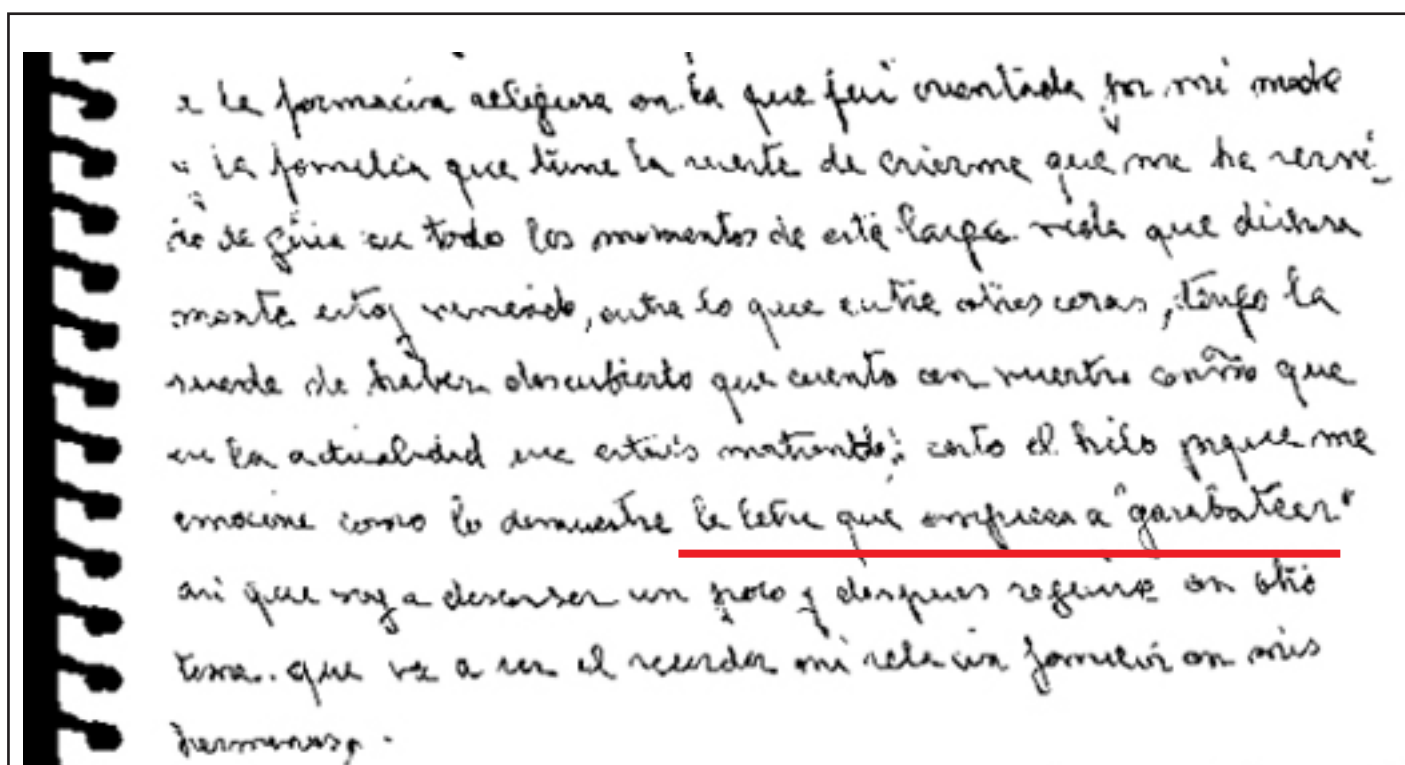 a la formación religiosa en la que fui orientada por mi madre
y la familia que tuve la suerte de criarme que me ha servi-
do de guia en todo los momentos de esta larga vida que dichosa
mente estoy viviendo, entre lo que entre otras cosas, tengo la
suerte de haber descubierto que cuento con vuestro cariño que
en la actualidad me estais mostrando; corto el hilo porque me
emocione como lo demuestra la letra que empieza a "garabatear"
asi que voy a descansar un poco y despues seguire en otro
tema. que va a ser el recordar mi relacion familiar con mis
hermanos.